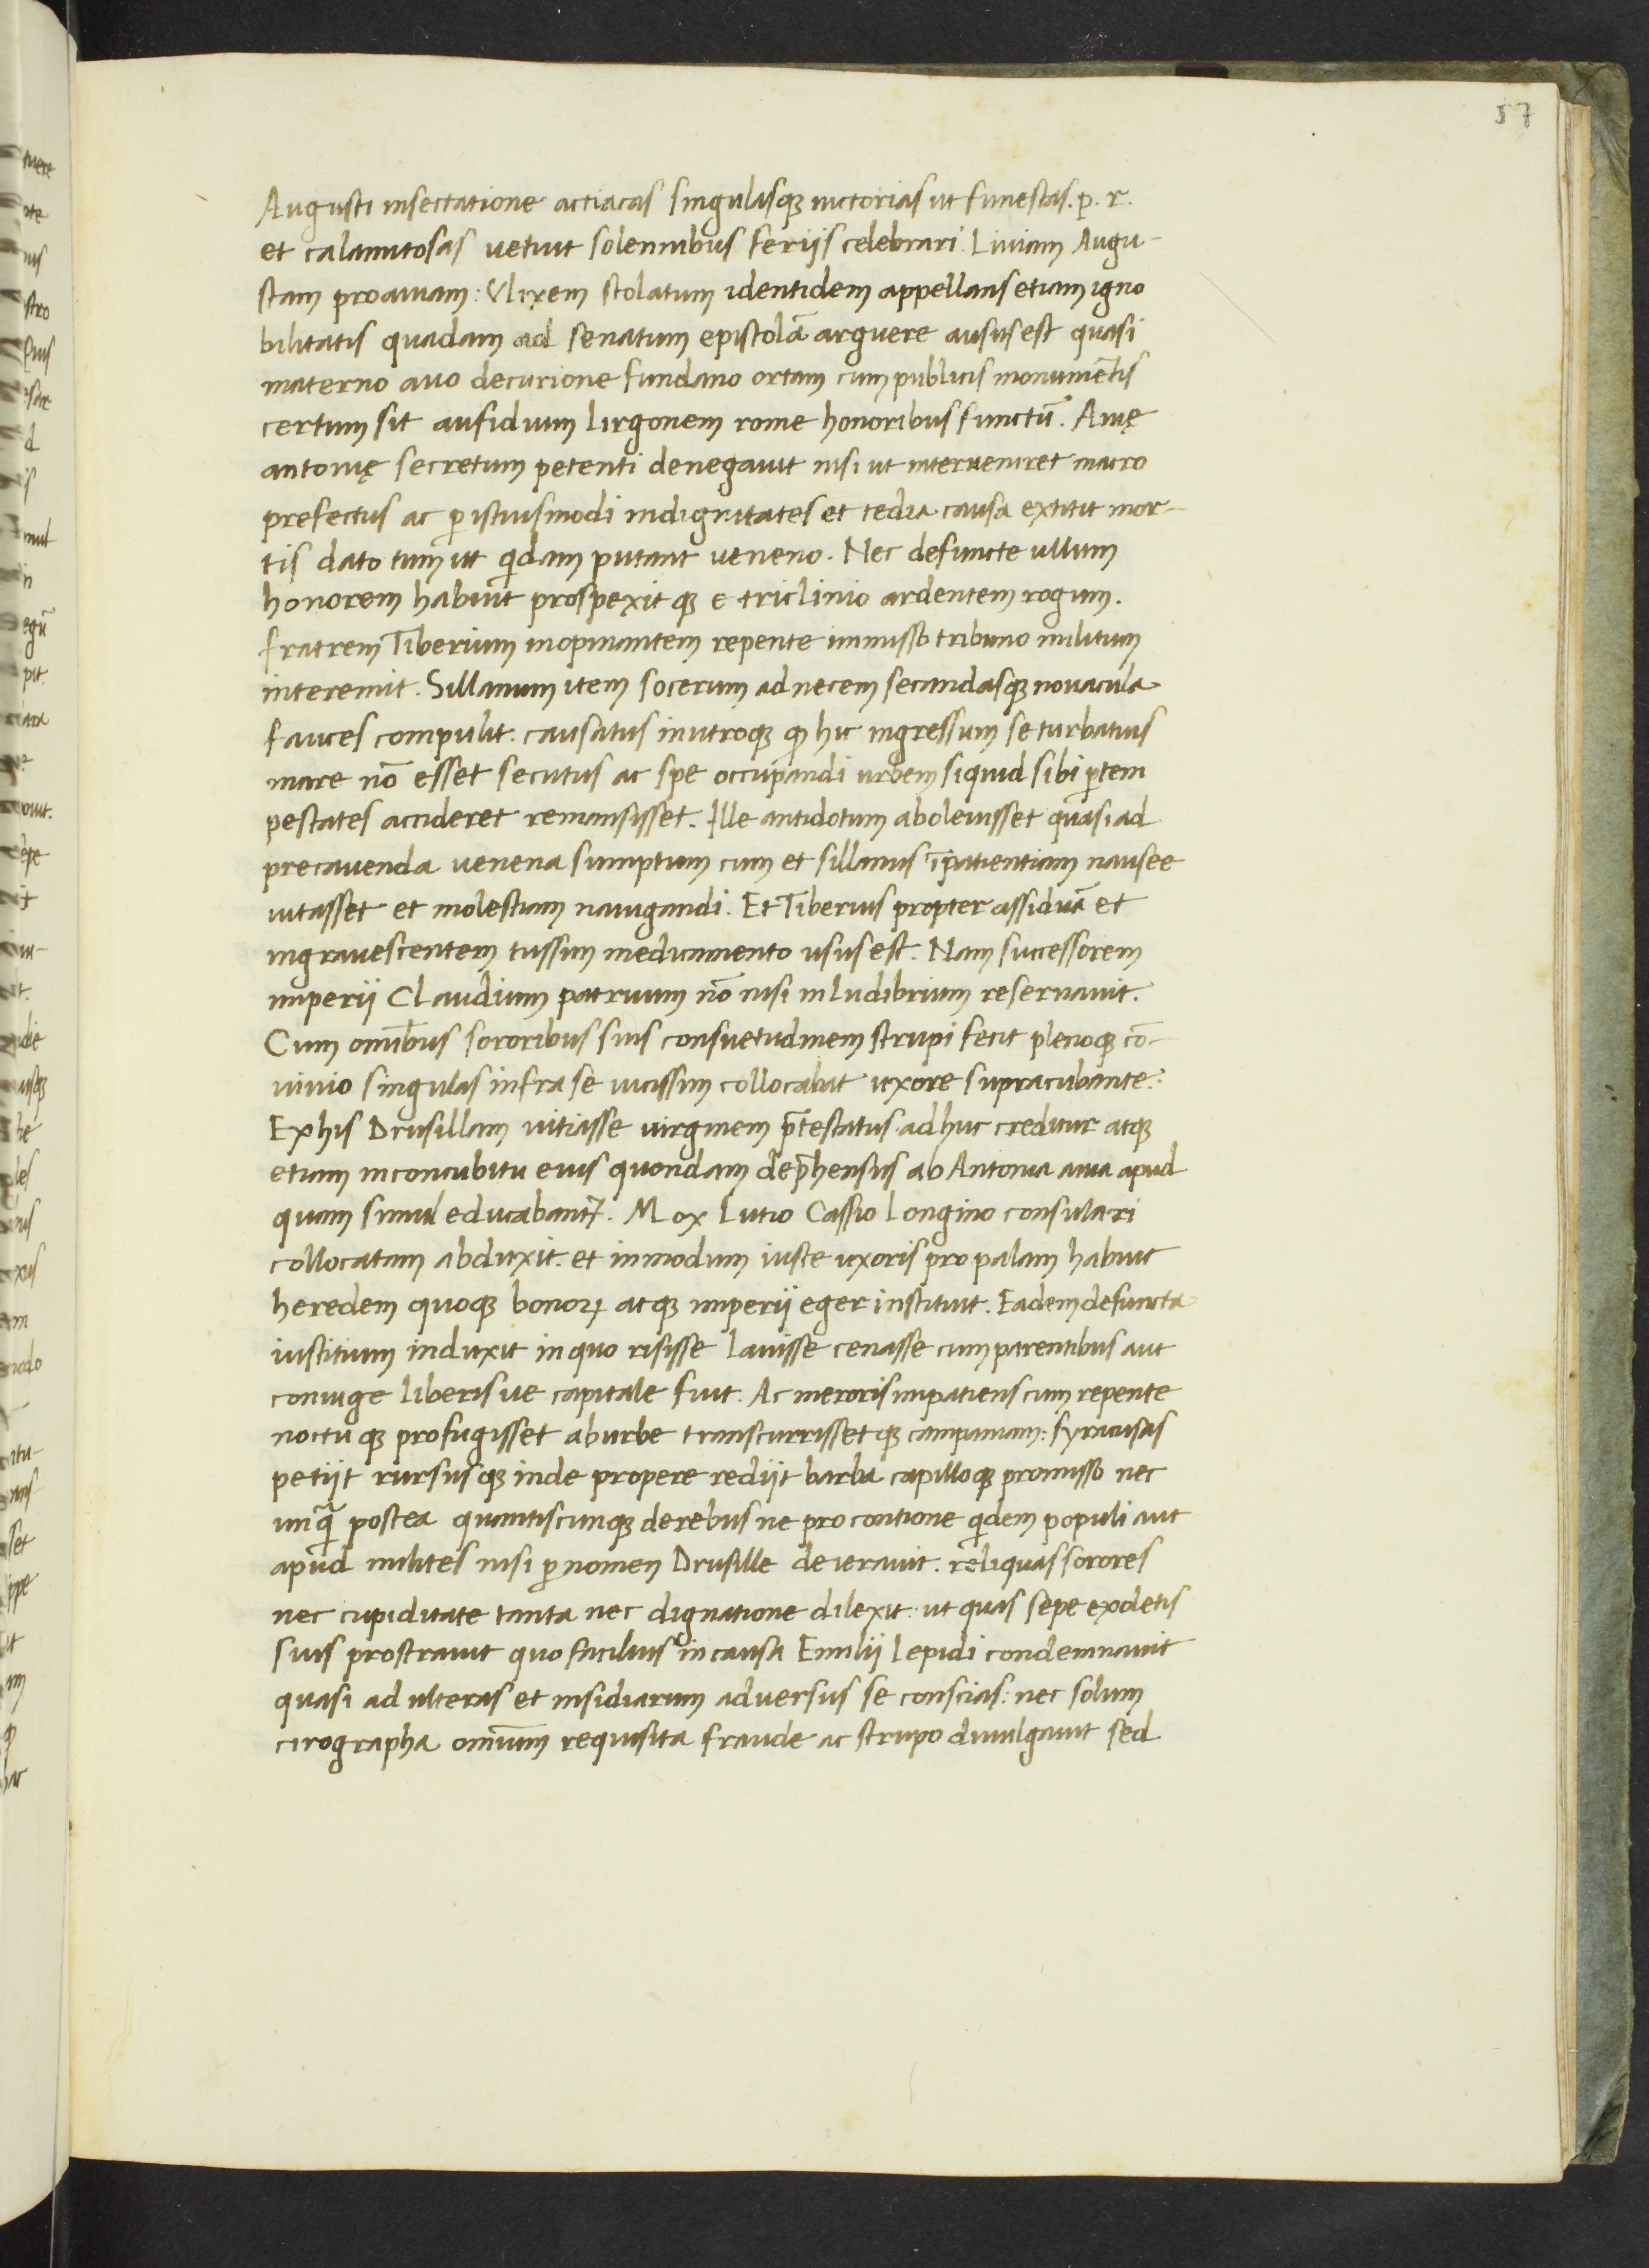 57
Augusti insectatione actiacas singulasqꝫ uictorias ut funestas. p. r.
et calamitosas uetuit solennibus ferijs celebrari. Liuiam Augu-
stam proauiam: Vlixem stolatum identidem appellans etiam igno
bilitatis quadam ad senatum epistolā arguere ausus est quasi
materno auo decurione fundano ortam cum publicis monumētis
certum sit aufidium lirgonem rome honoribus functū. Auię
antonię secretum petenti denegauit nisi ut interueniret macro
prefectus ac ꝑ istiusmodi indignitates et tedia causa extitit mor-
tis dato tum ut qͥdam putant ueneno. Nec defuncte ullum
honorem habuit prospexitqꝫ e triclinio ardentem rogum.
fratrem Tiberium inopinantem repente immisso tribuno militum
interemit. Sillanum item socerum ad necem secandasqꝫ nouacula
fauces compulit. causatus in utroqꝫ ꝙ hic ingressum se turbatius
mare nō esset secutus ac spe occupandi urbem siquid sibi ꝑ tem
pestates accideret remansisset. Ille antidotum aboleuisset quasi ad
precauenda uenena sumptum cum et sillanus īpatientiam nausee
uitasset et molestiam nauigandi. Et Tiberius propter assiduā et
ingrauescentem tussim medicamento usus est. Nam successorem
imperij Claudium patruum nō nisi in ludibrium reseruauit.
Cum omībus sororibus suis consuetudinem strupi fecit plenoqꝫ cō-
uiuio singulas infra se uicissim collocabat uxore supracubante.
Ex his Drusillam uitiasse uirginem p̄testatus adhuc creditur atqꝫ
etiam in concubitu eius quondam dep̄hensus ab Antonia auia apud
quam simul educabant᷑. Mox Lutio Cassio Longino consulari
collocatam abduxit. et in modum iuste uxoris propalam habuit
heredem quoqꝫ bonoꝝ atqꝫ imperij eger instituit. Eadem defuncta
iustitium induxit in quo risisse lauisse cenasse cum parentibus aut
coniuge liberis ue capitale fuit. Ac meroris impatiens cum repente
noctu qꝫ profugisset ab urbe transcurrisset qꝫ campaniam: syracusas
petijt rursus qꝫ inde propere redijt barba capilloqꝫ promisso nec
unqͣ̄ postea quantiscunqꝫ de rebus ne pro contione qͥdem populi aut
apud milites nisi ꝑ nomen Drusille deierauit. reliquas sorores
nec cupiditate tanta nec dignatione dilexit. ut quas sepe exoletis
suis prostrauit quo facilius in causa Emilij Lepidi condemnauit
quasi adulteras et insidiarum aduersus se conscias: nec solum
cirographa omīum requisita fraude ac strupo diuulgauit sed